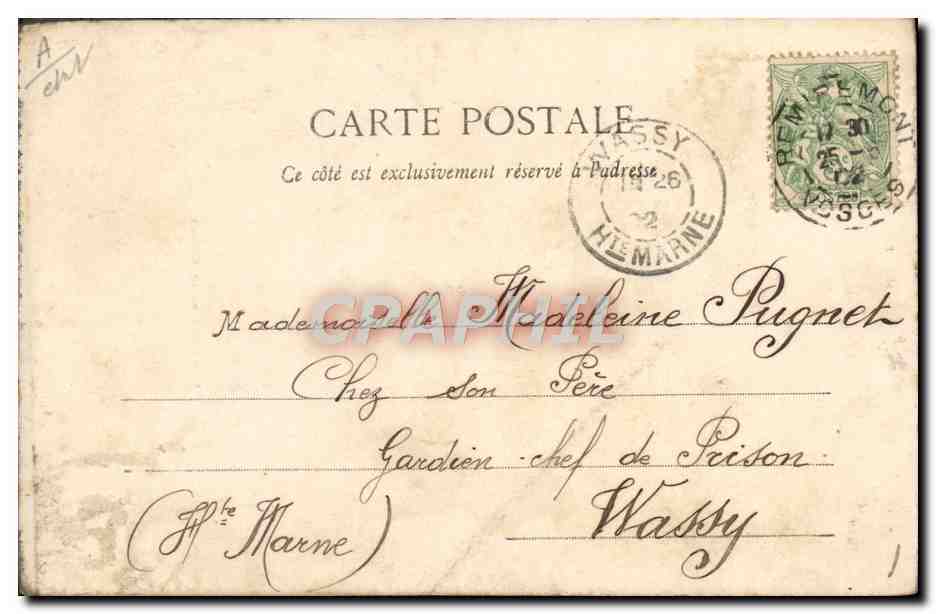 A
CARTE POSTALE
Ce côté est exclusivement réservé à l'adresse
WASSY
26
HTE MARNE
REMIREMONT
17 30
25 -1
02
VOSGES
CPAPHIL
Mademoiselle Madeleine Pugnet
Chez son Père
Gardien-chef de Prison
Wassy
(Hte Marne)